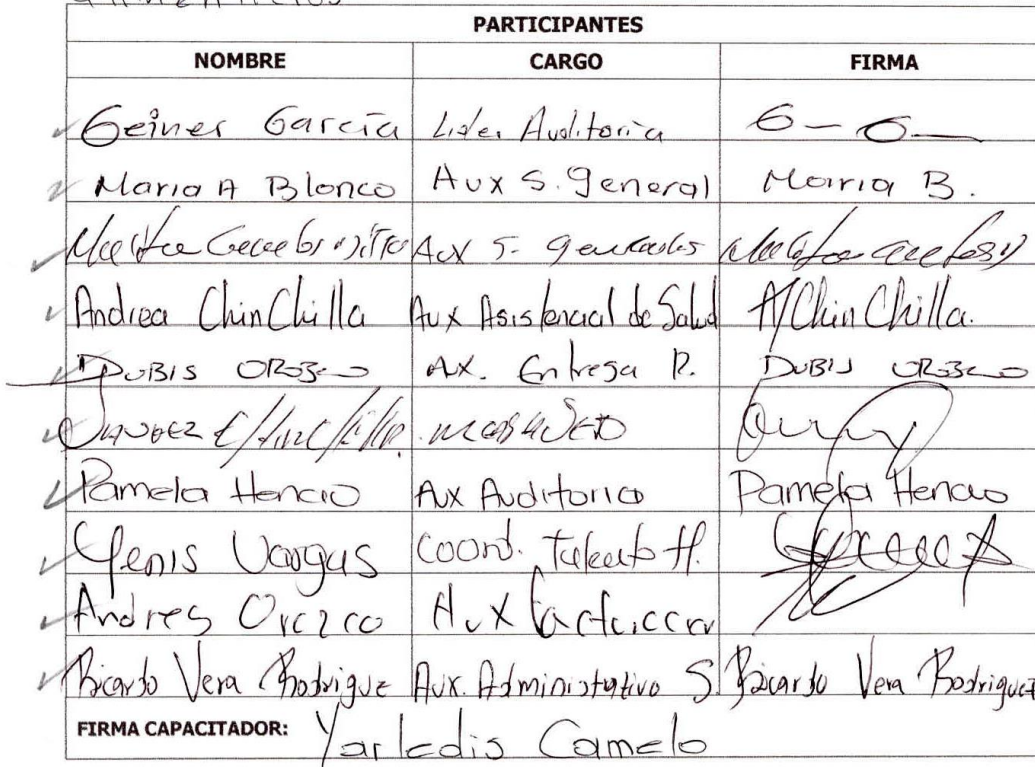 PARTICIPANTES
NOMBRE CARGO FIRMA
Geiner García Lider Auditoria
Maria A Blanco Aux S. General Maria B.
Aux S. Generales
Andrea ChinChilla Aux Asistencial de Salud A/ChinChilla.
DUBIS OROZCO AX. Entrega R. DUBIS OROZCO
Pamela Henao Aux Auditoria Pamela Henao
Yenis Vargas Coord. Talento H.
Andres Orozco Aux
Ricardo Vera Rodrigue Aux. Administrativo S. Ricardo Vera Rodriguez
FIRMA CAPACITADOR: Yarledis Camelo